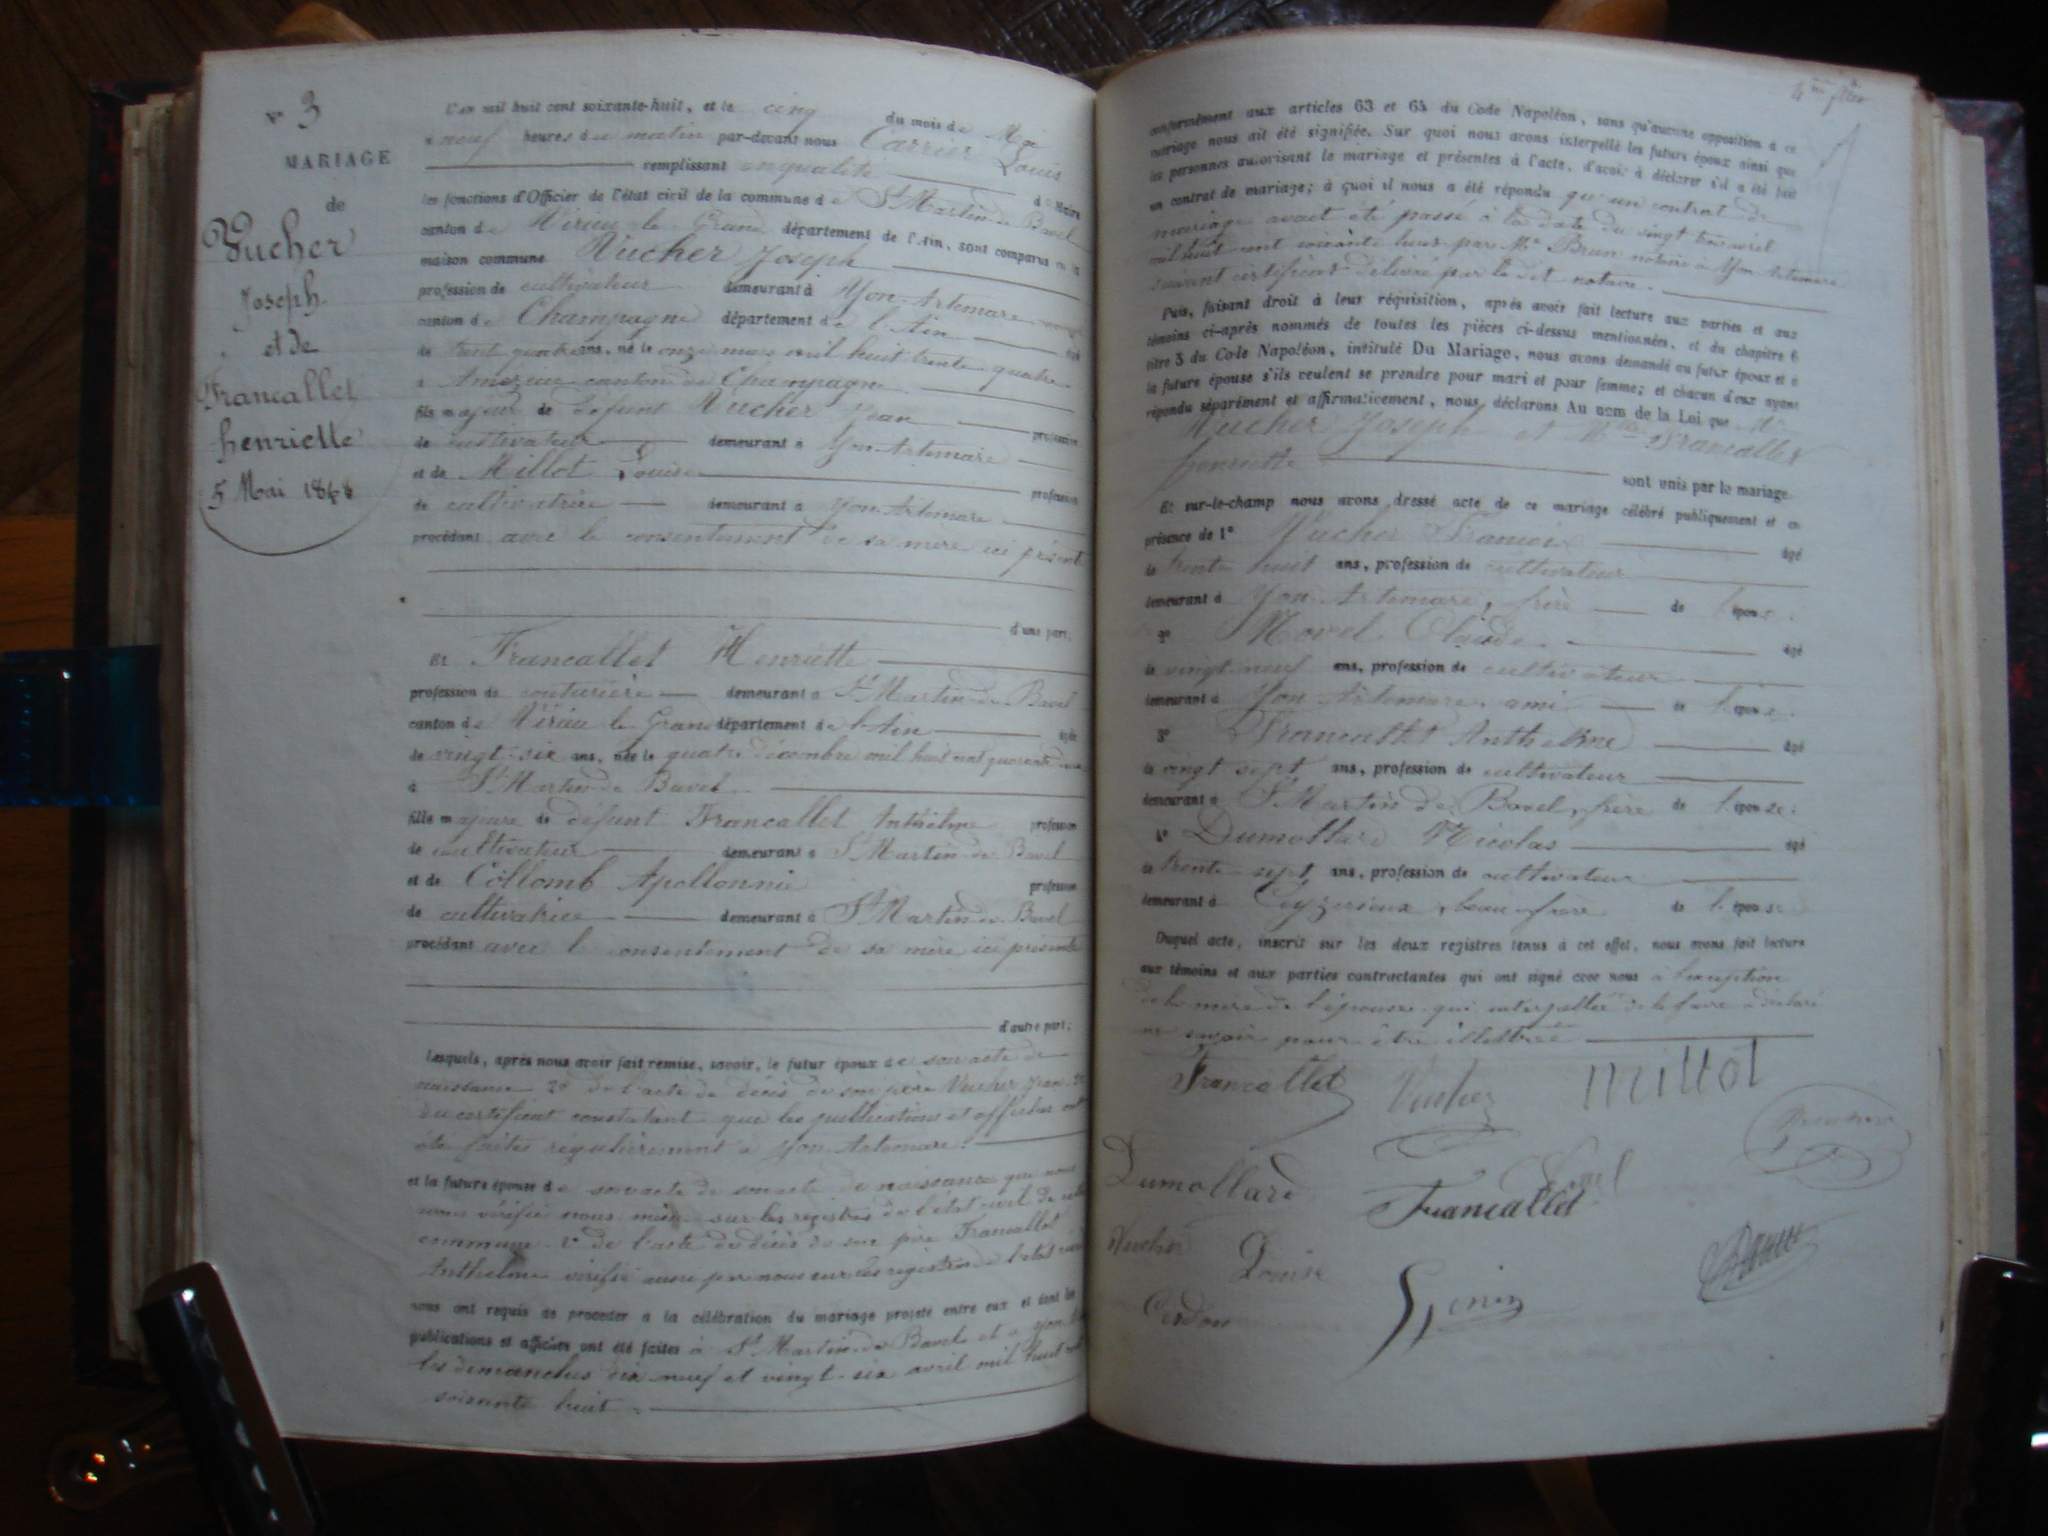 N° 3
MARIAGE
de
Vucher
Joseph
et de
Francallet
henriette
5 Mai 1868
L'an mil huit cent soixante-huit, et le cinq du mois de Mai
à neuf heures du matin par-devant nous Carrier Louis
remplissant en qualité d Maire
les fonctions d'Officier de l'état civil de la commune de St Martin de Bavel
canton de Virieu le Grand département de l'Ain, sont comparus en la
maison commune Vucher Joseph
profession de cultivateur demeurant à Yon-Artemare
canton de Champagne département de l'Ain âgé
de trent quatre ans, né le onze mars mil huit trente quatre
à Ameyzieu canton de Champagne
fils majeur de défunt Vucher Jean profession
de cultivateur demeurant à Yon-Artemare
et de Millot Louise profession
de cultivatrice demeurant à Yon-Artemare
procédant avec le consentement de sa mère ici présente
d'une part;
Et Francallet Henriette
profession de couturière demeurant à St Martin de Bavel
canton de Virieu le Grand département de l'Ain âgée
de vingt-six ans, née le quatre décembre mil huit cent quarante
à St Martin de Bavel
fille majeure de défunt Francallet Anthelme profession
de cultivateur demeurant à St Martin de Bavel
et de Collomb Apollonnie profession
de cultivatrice demeurant à St Martin de Bavel
procédant avec le consentement de sa mère ici présente
d'autre part;
Lesquels, après nous avoir fait remise, savoir, le futur époux de son acte de
naissance 2° de l'acte de décès de son père Vucher Jean 3°
du certificat constatant que les publications et affiches ont
été faites régulièrement à Yon-Artemare.
et la future épouse de son acte de son acte de naissance que nous
avons vérifié nous même sur les registres de l'état civil de cette
commune 2° de l'acte de décès de son père Francallet
Anthelme vérifié aussi par nous sur les registres de l'état civil
nous ont requis de procéder à la célébration du mariage projeté entre eux et dont les
publications et affiches ont été faites à St Martin de Bavel et à Yon
les dimanches dix neuf et vingt-six avril mil huit cent
soixante huit
conformément aux articles 63 et 64 du Code Napoléon, sans qu'aucune opposition à ce
mariage nous ait été signifiée. Sur quoi nous avons interpellé les futurs époux ainsi que
les personnes autorisant le mariage et présentes à l'acte, d'avoir à déclarer s'il a été fait
un contrat de mariage; à quoi il nous a été répondu qu'un contrat de
mariage avait été passé à la date du vingt trois avril
mil huit cent soixante huit par Me Brun notaire à Yon Artemare
suivant certificat délivré par le dit notaire.
Puis, faisant droit à leur réquisition, après avoir fait lecture aux parties et aux
témoins ci-après nommés de toutes les pièces ci-dessus mentionnées, et du chapitre 6
titre 5 du Code Napoléon, intitulé Du Mariage, nous avons demandé au futur époux et à
la future épouse s'ils veulent se prendre pour mari et pour femme; et chacun d'eux ayant
répondu séparément et affirmativement, nous déclarons Au nom de la Loi que Mr
Vucher Joseph et Mlle Francallet
henriette sont unis par le mariage.
Et sur-le-champ nous avons dressé acte de ce mariage célébré publiquement et en
présence de 1° Vucher Francois âgé
de trente huit ans, profession de cultivateur
demeurant à Yon Artemare, frère de l'époux.
2° Movel Claude âgé
de vingt neuf ans, profession de cultivateur
demeurant à Yon Artemare, ami de l'époux.
3° Francallet Anthelme âgé
de vingt sept ans, profession de cultivateur
demeurant à St Martin de Bavel, frère de l'épouse;
4° Dumollard Nicolas âgé
de trente-sept ans, profession de cultivateur
demeurant à Ceyzerieux, beau frère de l'épouse
Duquel acte, inscrit sur les deux registres tenus à cet effet, nous avons fait lecture
aux témoins et aux parties contractantes qui ont signé avec nous à l'exception
de la mère de l'épouse qui interpellée de le faire a déclaré
ne savoir pour être illettrée
Francallet Vucher Millot
Dumollard Francallet
Vucher Louise
Cerdon Genin